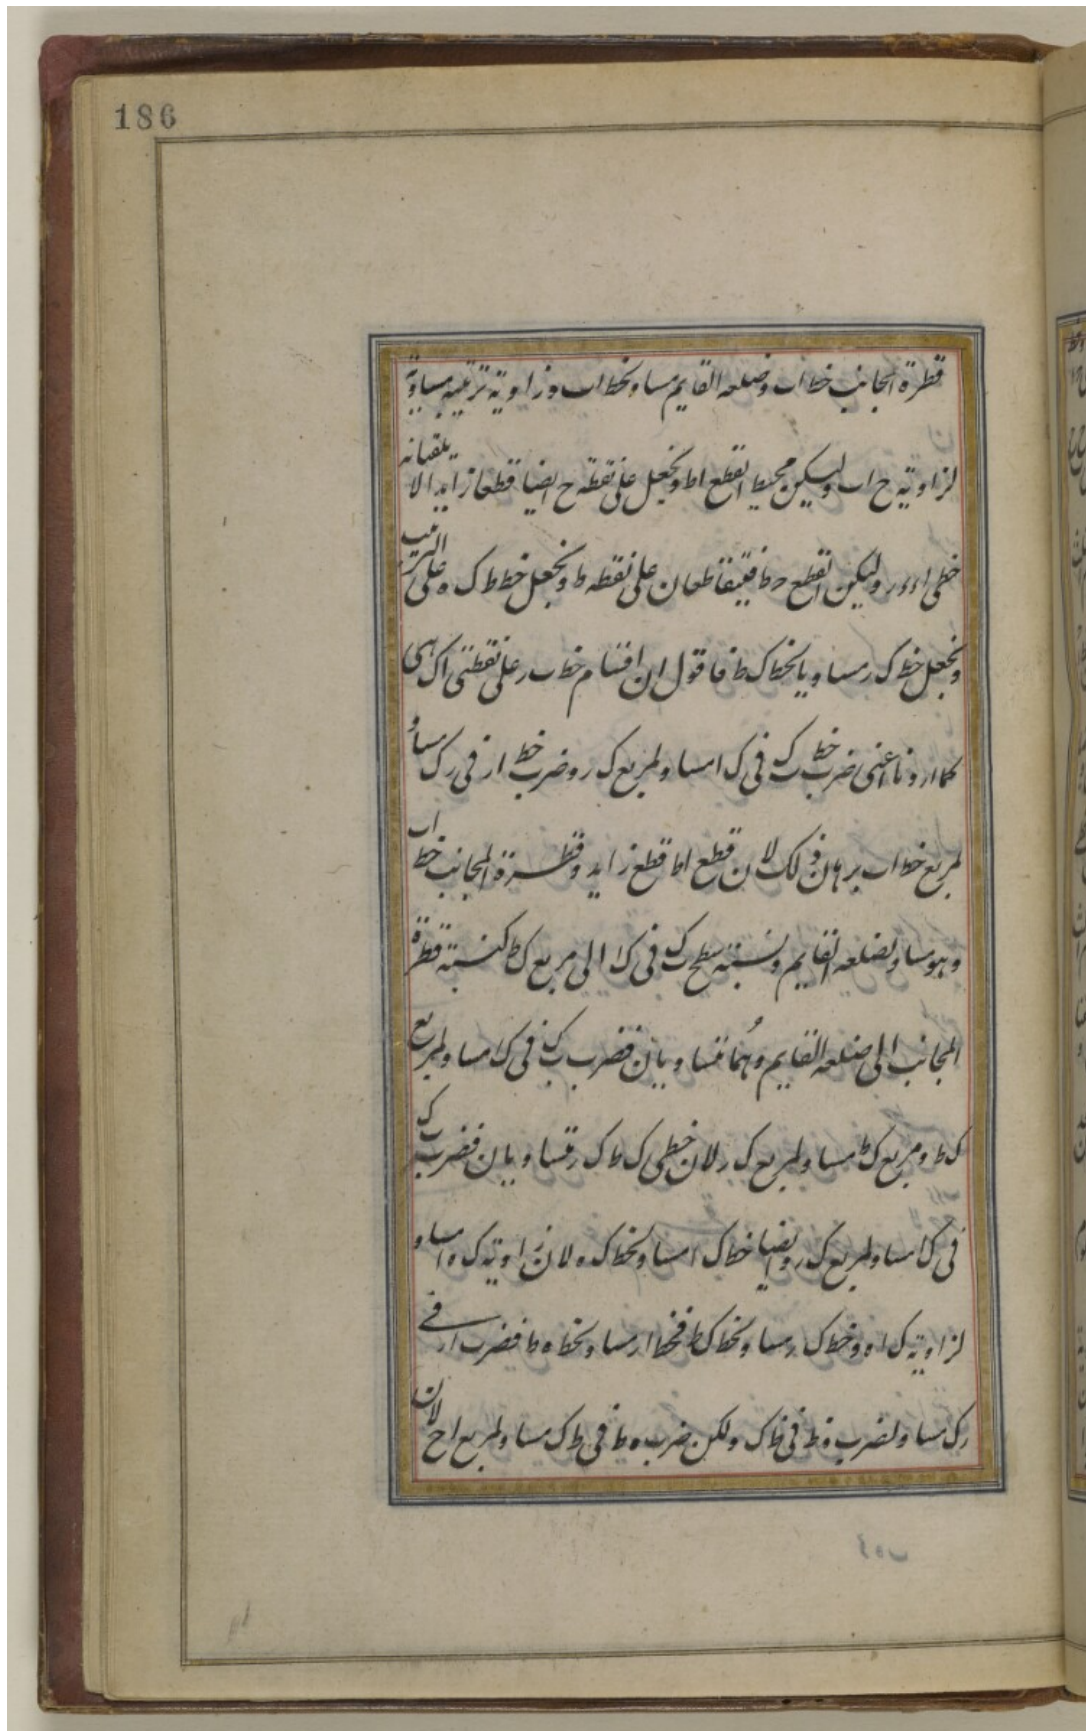 186
قطرة المجانب خط اب وضلعه القايم مساو لخط اب وزاوية ترتيبه مساوية
لزاوية ح اب وليكن محيط القطع اط ونجعل على نقطة ح ايضا قطعا زايدا لا يلقيانه
خطى اء ءر وليكن القطع ح ط فيتقاطعان على نقطه ط ونجعل خط ط ك ه على الترتيب
ونجعل خط ك ر مساويا لخط ك ط فاقول ان اقسام خط ب ر على نقطتى ا ك هى
كما اردنا اعنى ضرب خط ب ك فى ك ا مساو لمربع ك ر وضرب خط ار فى رك مساو
لمربع خط اب برهان ذلك لان قطع اط قطع زايد وقطرة المجانب خط اب
وهو مساو لضلعه القايم ونسبة سطح ب ك فى ك ا الى مربع ك ط كنسبة قطرة
المجانب الى ضلعه القايم وهُما متساويان فضرب ب ك فى ك ا مساو لمربع
ك ط ومربع ك ط مساو لمربع ك ر لان خطى ك ط ك ر متساويان فضرب ب ك
فى ك ا مساو لمربع ك ر وايضا خط ك ا مساو لخط ك ه لان زاوية ك ه ا مساو
لزاوية ك ا ه وخط ك ر مساو لخط ك ط فخط ار مساو لخط ه ط فضرب ار فى
رك مساو لضرب ه ط فى ط ك ولكن ضرب ه ط فى ط ك مساو لمربع اح لان